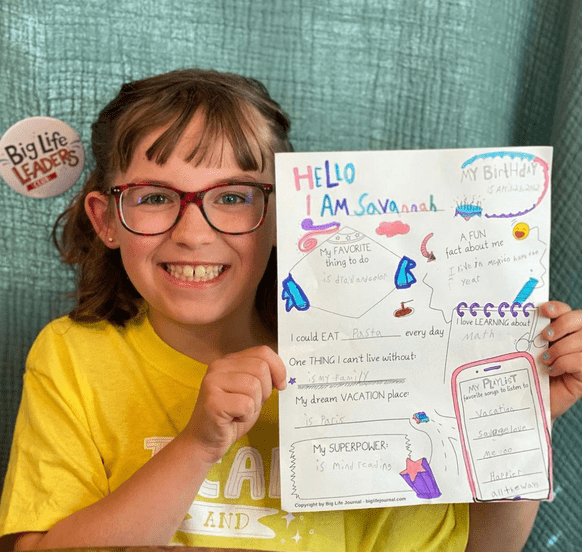 Big Life
LEADERS
CLUB
HELLO
I AM Savannah
MY BIRTHDAY
My FAVORITE
thing to do
is draw and color
A FUN
fact about me
I live in
year
I could EAT Pasta every day
One THING I can't live without:
is my family
My dream VACATION place:
is Paris
My SUPERPOWER:
is Mind reading
I love LEARNING about
Math
MY PLAYLIST
favorite songs to listen to
Vacation
savage love
Me-no
Happier
all the way
Copyright by Big Life Journal - biglifejournal.com
AND